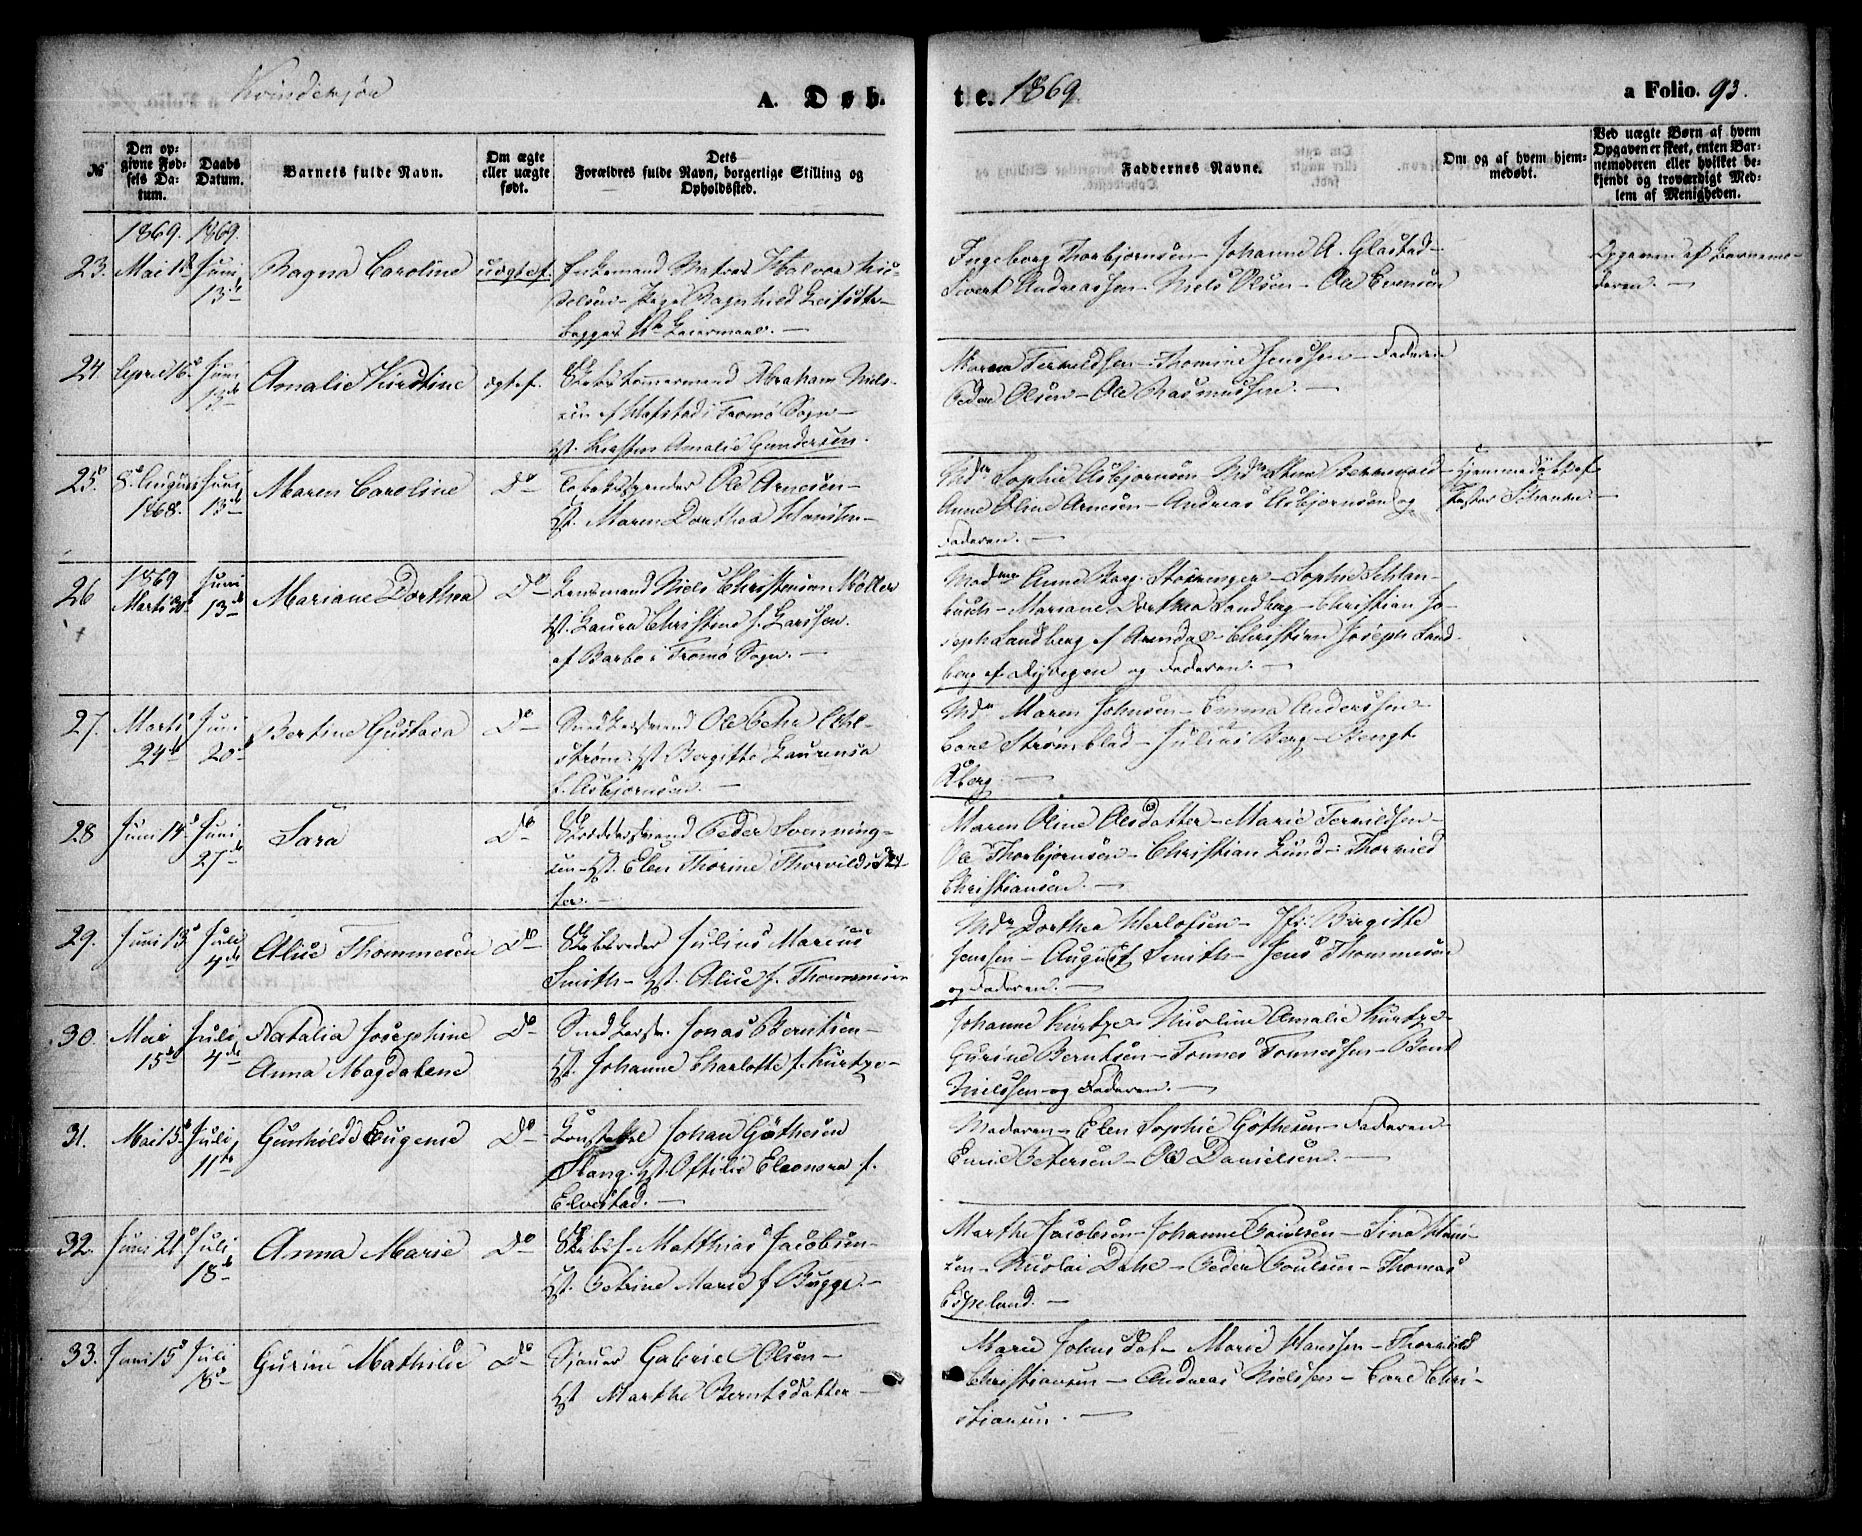 Kvindekjøn
A. Døb-
te. 1869.
a Folio. 93.
№
Den opgivne Fødsels Datum.
Daabs Datum.
Barnets fulde Navn.
Om ægte eller uægte født.
Dets Forældres fulde Navn, borgerlige Stilling og Opholdssted.
Faddernes Navne.
Om og af hvem hjemmedøbt.
Ved uægte Børn af hvem Opgaven er skeet, enten Barnemoderen eller hvilket bekjendt og troværdigt Medlem af Menigheden.
1869. 1869.
23. Mai Juni 13de Ragna Caroline uægte f. Halvor
Pige Ragnhild
Ingeborg Thorbjørnsen – Johanne A. Glastad –
Sivert Andreassen – Niels Olsen – Ole Evensen
Opgaven af Barnemo-
deren. –
24. April 16 Juni 13de Amalie Kirstine ægte f. Skibstømmermand Abraham Niel-
sen af Hafstad i Tromø Sogn –
Hst. Kirsten Amalie Gundersen.
Maren Terveldsen – Thomine Jenssen – Faderen
Peder Olsen – Ole Rasmussen. –
25. 8de August 1868. Juni 13de Maren Caroline Do Ole Arnesen –
Hst. Maren Dorthea Hansen –
Md. Sophie Asbjørnsen Md.
Anne Oline Arnesen – Andreas Asbjørnsen og
Faderen. –
Hjemmedøbt af
26 1869 Marts Juni 13de Mariane Dorthea Do Lensmand Niels Christensen Møller
Hst. Laura Christine f. Larssen.
af Barbo i Tromø Sogn. –
Madme Anne Berg – Sophie Schlan-
busch – Mariane Dorthea Sandberg – Christian Jo-
seph Sandberg af Arendal – Christian Joseph Sand-
berg af og Faderen. –
27. Marts 24de Juni 20de Bertine Gustava Do Ole Pehr
Hst. Bergitte Laurensa
f. Asbjørnsen. –
Md. Maren Johnsen – Emma Anderssen –
Carl Strømblad – Julius Berg – Bengt
Åberg. –
28 Juni 14de Juni 27de Sara Do Peder Svenning-
sen – Hst. Elen Thorine Thorvildsdat-
ter. –
Maren Oline Olsdatter – Marie Tervildsen –
Ole Thorbjørnsen – Christian Lund – Thorvild
Christiansen. –
29. Juni 13de Juli 4de Alice Thommesen Do Skibsreder Julius Marius
Smith – Hst. Alice f. Thommesen
Md. Dorthea Herlofsen – Jfr. Birgitte
Jenssen – August Smith – Jens Thommesen
og Faderen. –
30. Mai 15de Juli 4de Natalia Josephine
Anna Magdalene Do Jonas Berntsen –
Hst. Johanne Charlotte f. Kurtze –
Johanne Kurtze – Nicoline Amalie Kurtze –
Gurine Berntsen – Tønnes Tønnessen – Bent
Nielssen og Faderen. –
31. Mai 15de Juli 11te Gunhilde Eugenie Do Konstabel Johan Gøthesen
Stang. Hst. Ottilie Eleonora f.
Elvestad. –
Moderen – Elen Sophie Gøthesen – Faderen
Emil Petersen – Ole Danielsen. –
32. Juni 21de Juli 18de Anna Marie Do Skibsf. Matthias Jacobsen –
Hst. Petrine Marie f. Bugge. –
Marthe Jacobsen – Johanne Poulsen – Sina Han-
sen – Nicolai Dahl – Peder Poulsen – Thomas
Espeland. –
33. Juni 15de Juli 18de Gurine Mathilde Do Sjouer Gabriel Olsen –
Hst. Marthe Berntsdatter –
Marie Johnsdat – Marie Hanssen – Thorvild
Christiansen – Andreas Nielssen – Carl Chri-
stiansen. –